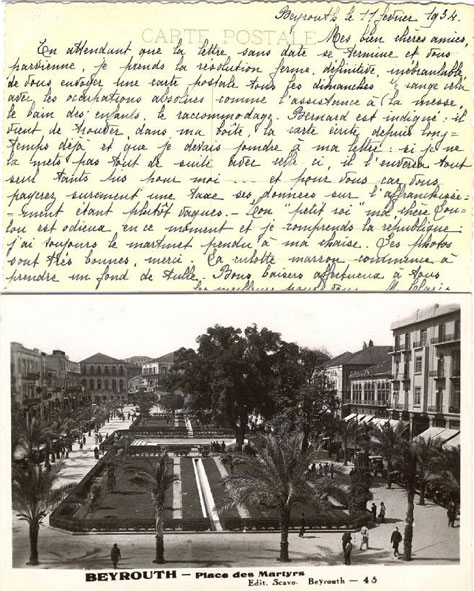 Beyrouth le 17 février 1934.
CARTE POSTALE
Mes bien chères amies,
En attendant que la lettre sans date se termine et vous
parvienne, je prends la résolution ferme, définitive, inébranlable
de vous envoyer une carte postale tous les dimanches. Je range cela
avec les occupations absolues comme l'assistance à la messe,
le bain des enfants, le raccommodage. Bernard est indigné : il
vient de trouver, dans ma boîte, la carte écrite depuis long-
temps déjà et que je devais joindre à ma lettre : si je ne
la mets pas tout de suite avec celle ci, il l'enverra tout
seul tant pis pour moi et pour vous car vous
payerez surement une taxe ses données sur l'affranchisse-
ment étant plutôt vagues. - Ton "petit roi" ma chère
est odieux en ce moment et je comprends la république
j'ai toujours le martinet pendu à ma chaise. Les photos
sont très bonnes, merci. La culotte marron commence à
prendre un fond de tulle. Bons baisers affectueux à tous
BEYROUTH — Place des Martyrs
Edit. Scavo. Beyrouth — 45